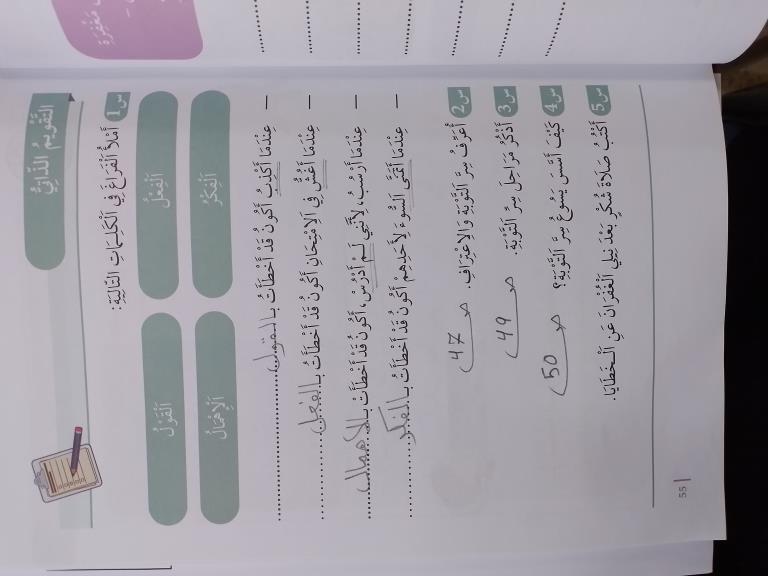 التَّقْوِيمُ الذَّاتِيُّ
س1 أَمْلَأُ الْفَرَاغَ فِي الْكَلِمَاتِ التَّالِيَةِ:
الْفِعْلُ الْقَوْلُ
الْفِكْرُ الْإِهْمَالُ
– عِنْدَمَا أَكْذِبُ أَكُونُ قَدْ أَخْطَأْتُ بـ القول
– عِنْدَمَا أَغُشُّ فِي الِامْتِحَانِ أَكُونُ قَدْ أَخْطَأْتُ بـ الفعل
– عِنْدَمَا أَرْسُبُ، لِأَنَّنِي لَمْ أَدْرُسْ، أَكُونُ قَدْ أَخْطَأْتُ بـ الاهمال
– عِنْدَمَا أَتَمَنَّى السُّوءَ لِأَحَدِهِمْ أَكُونُ قَدْ أَخْطَأْتُ بـ الفكر
س2 أُعَرِّفُ سِرَّ التَّوْبَةِ وَالِاعْتِرَافِ. ص 47
س3 أَذْكُرُ مَرَاحِلَ سِرِّ التَّوْبَةِ. ص 49
س4 كَيْفَ أَسَّسَ يَسُوعُ سِرَّ التَّوْبَةِ؟ ص 50
س5 أَكْتُبُ صَلَاةَ شُكْرٍ بَعْدَ نَيْلِي الْغُفْرَانَ عَنِ الْخَطَايَا.
55